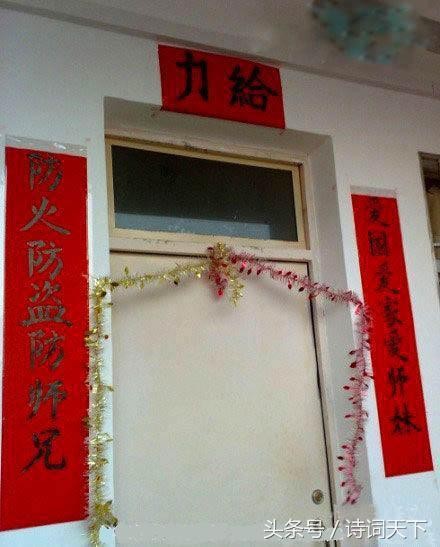 給力
爱國爱家爱师妹
防火防盗防师兄
头条号 / 诗词天下